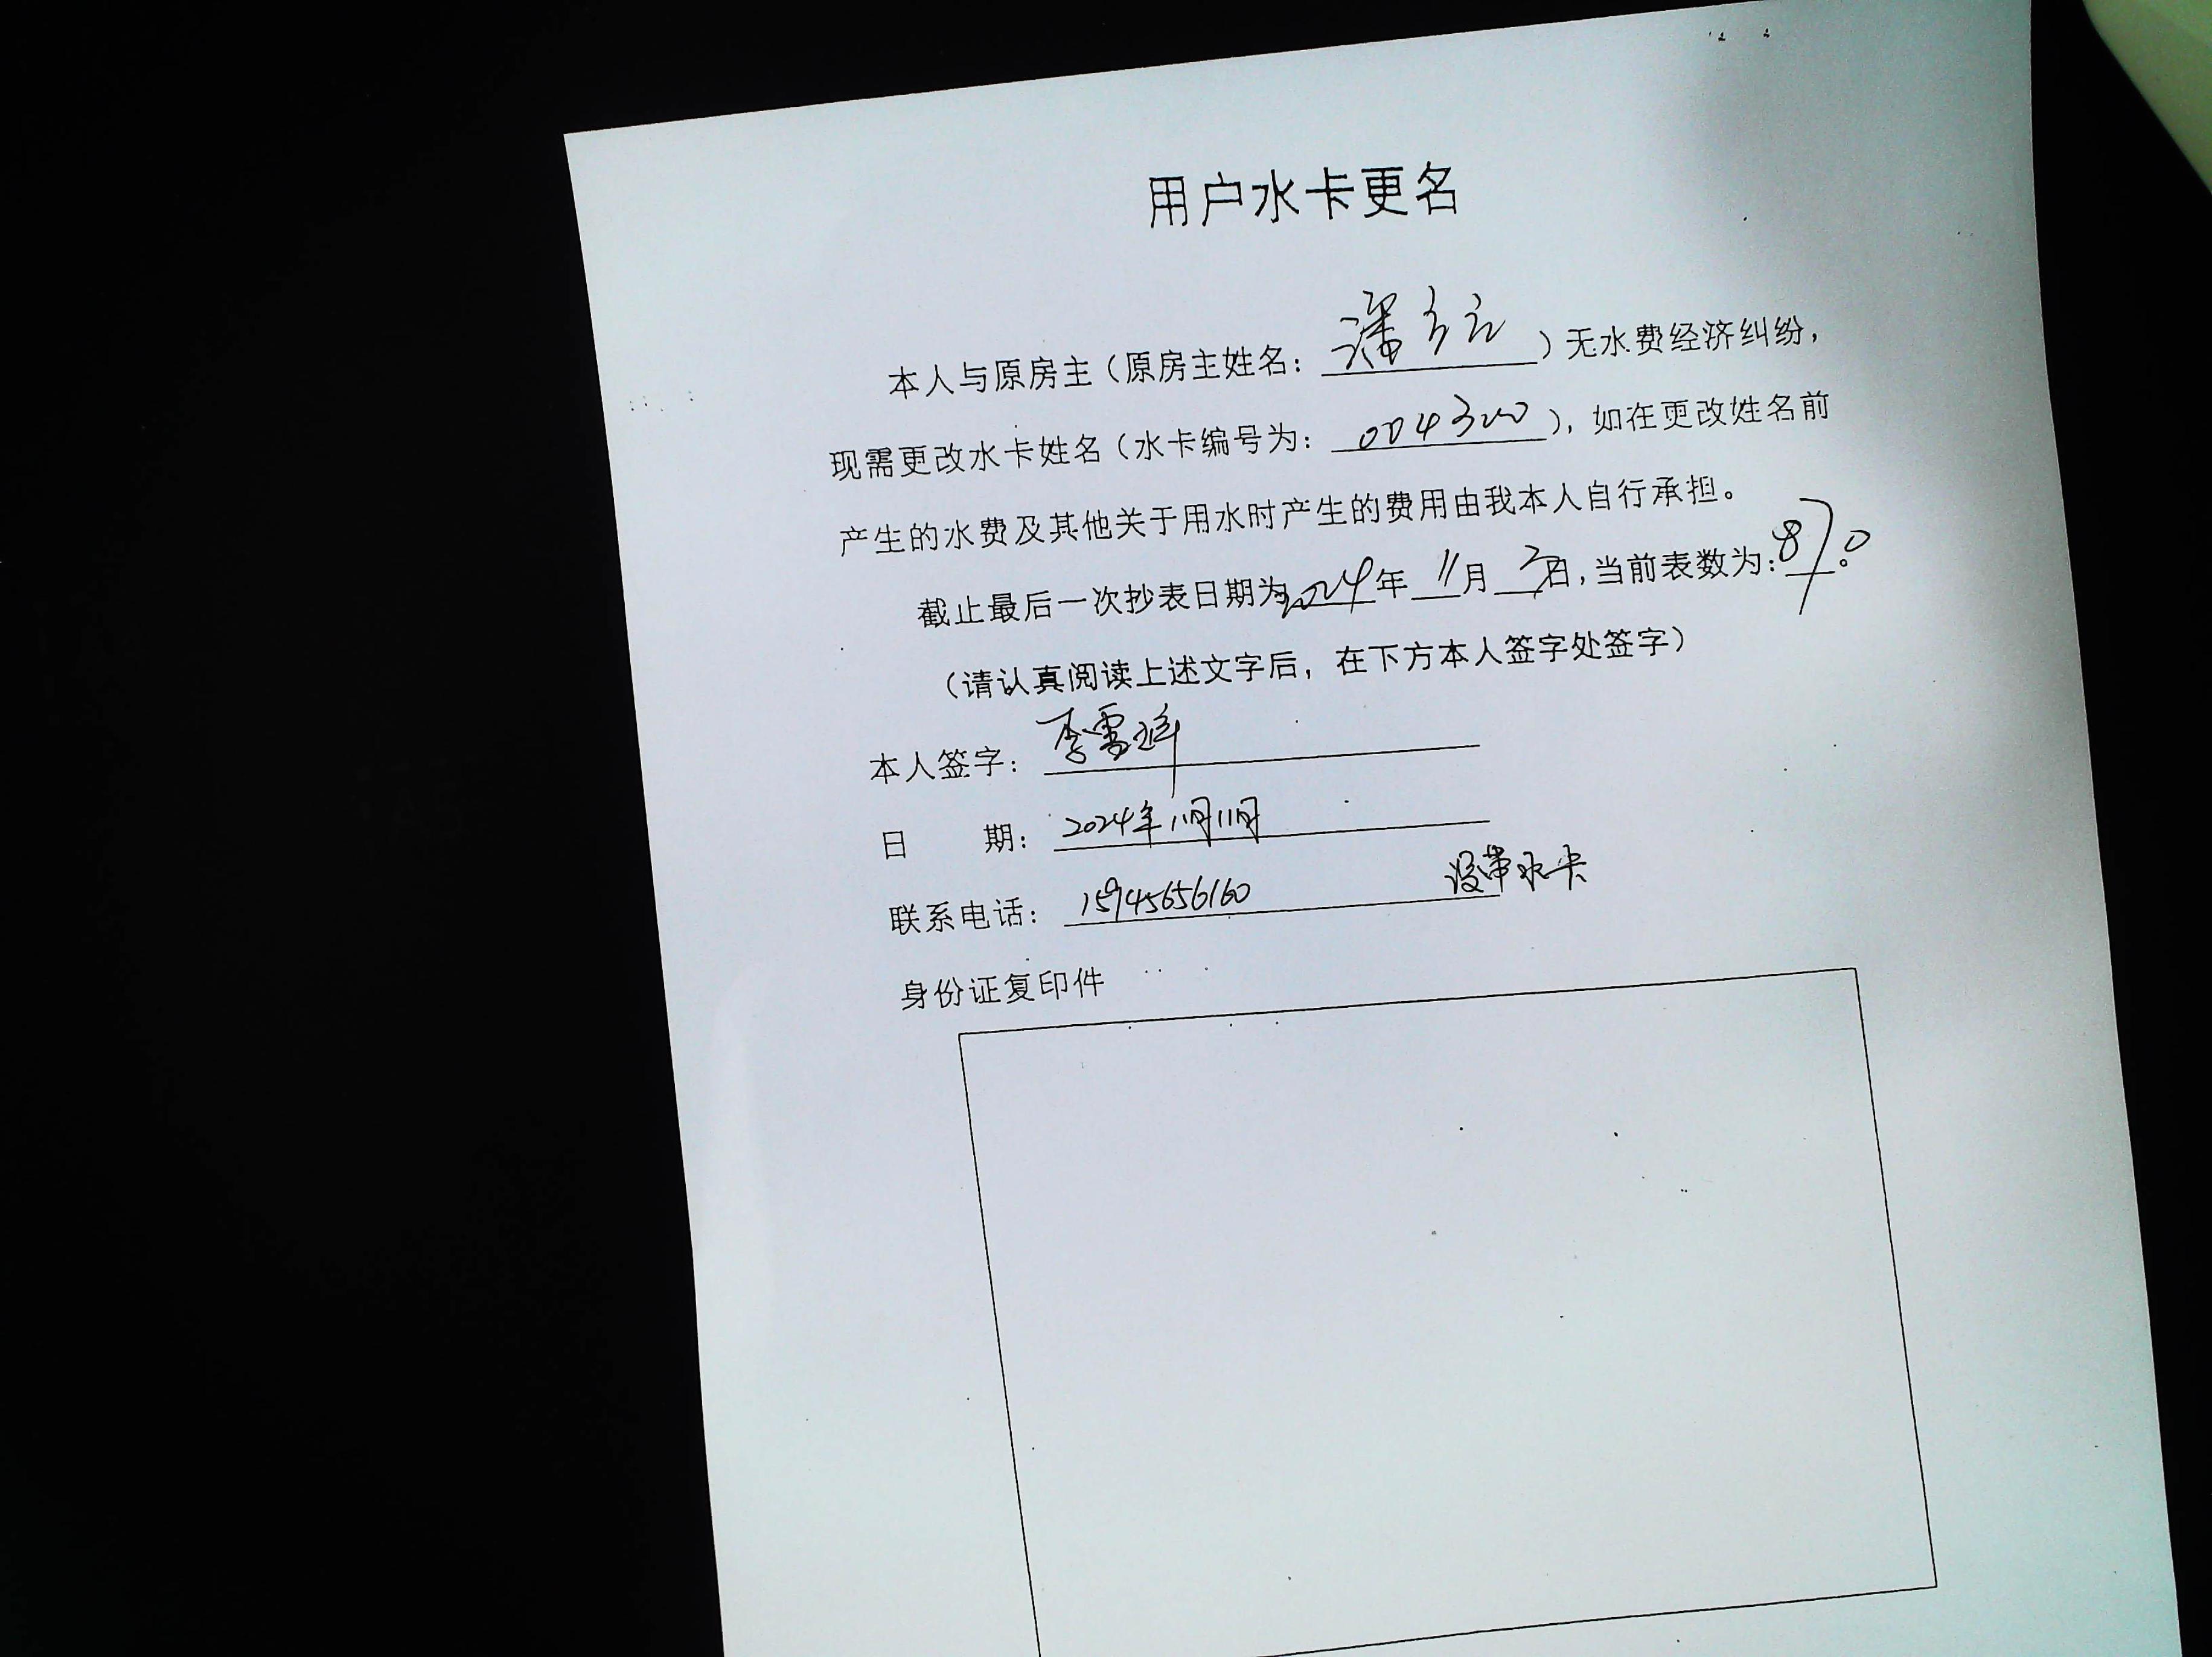 用户水卡更名
本人与原房主（原房主姓名：潘）无水费经济纠纷，
现需更改水卡姓名（水卡编号为：004300），如在更改姓名前
产生的水费及其他关于用水时产生的费用由我本人自行承担。
截止最后一次抄表日期为2024年11月日，当前表数为：870。
（请认真阅读上述文字后，在下方本人签字处签字）
本人签字：李雪
日期：2024年11月11日
联系电话：15945656160 没带水卡
身份证复印件